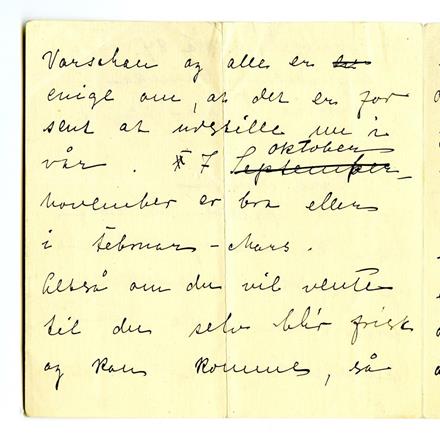 Varschau og alle er ~~en~~
enige om, at det er for
sent at udstille nu i
vår. I oktober ~~September~~
November er bra eller
i Februar - Mars.
Altså om du vil vente
til du selv blir frisk
og kan komme, så